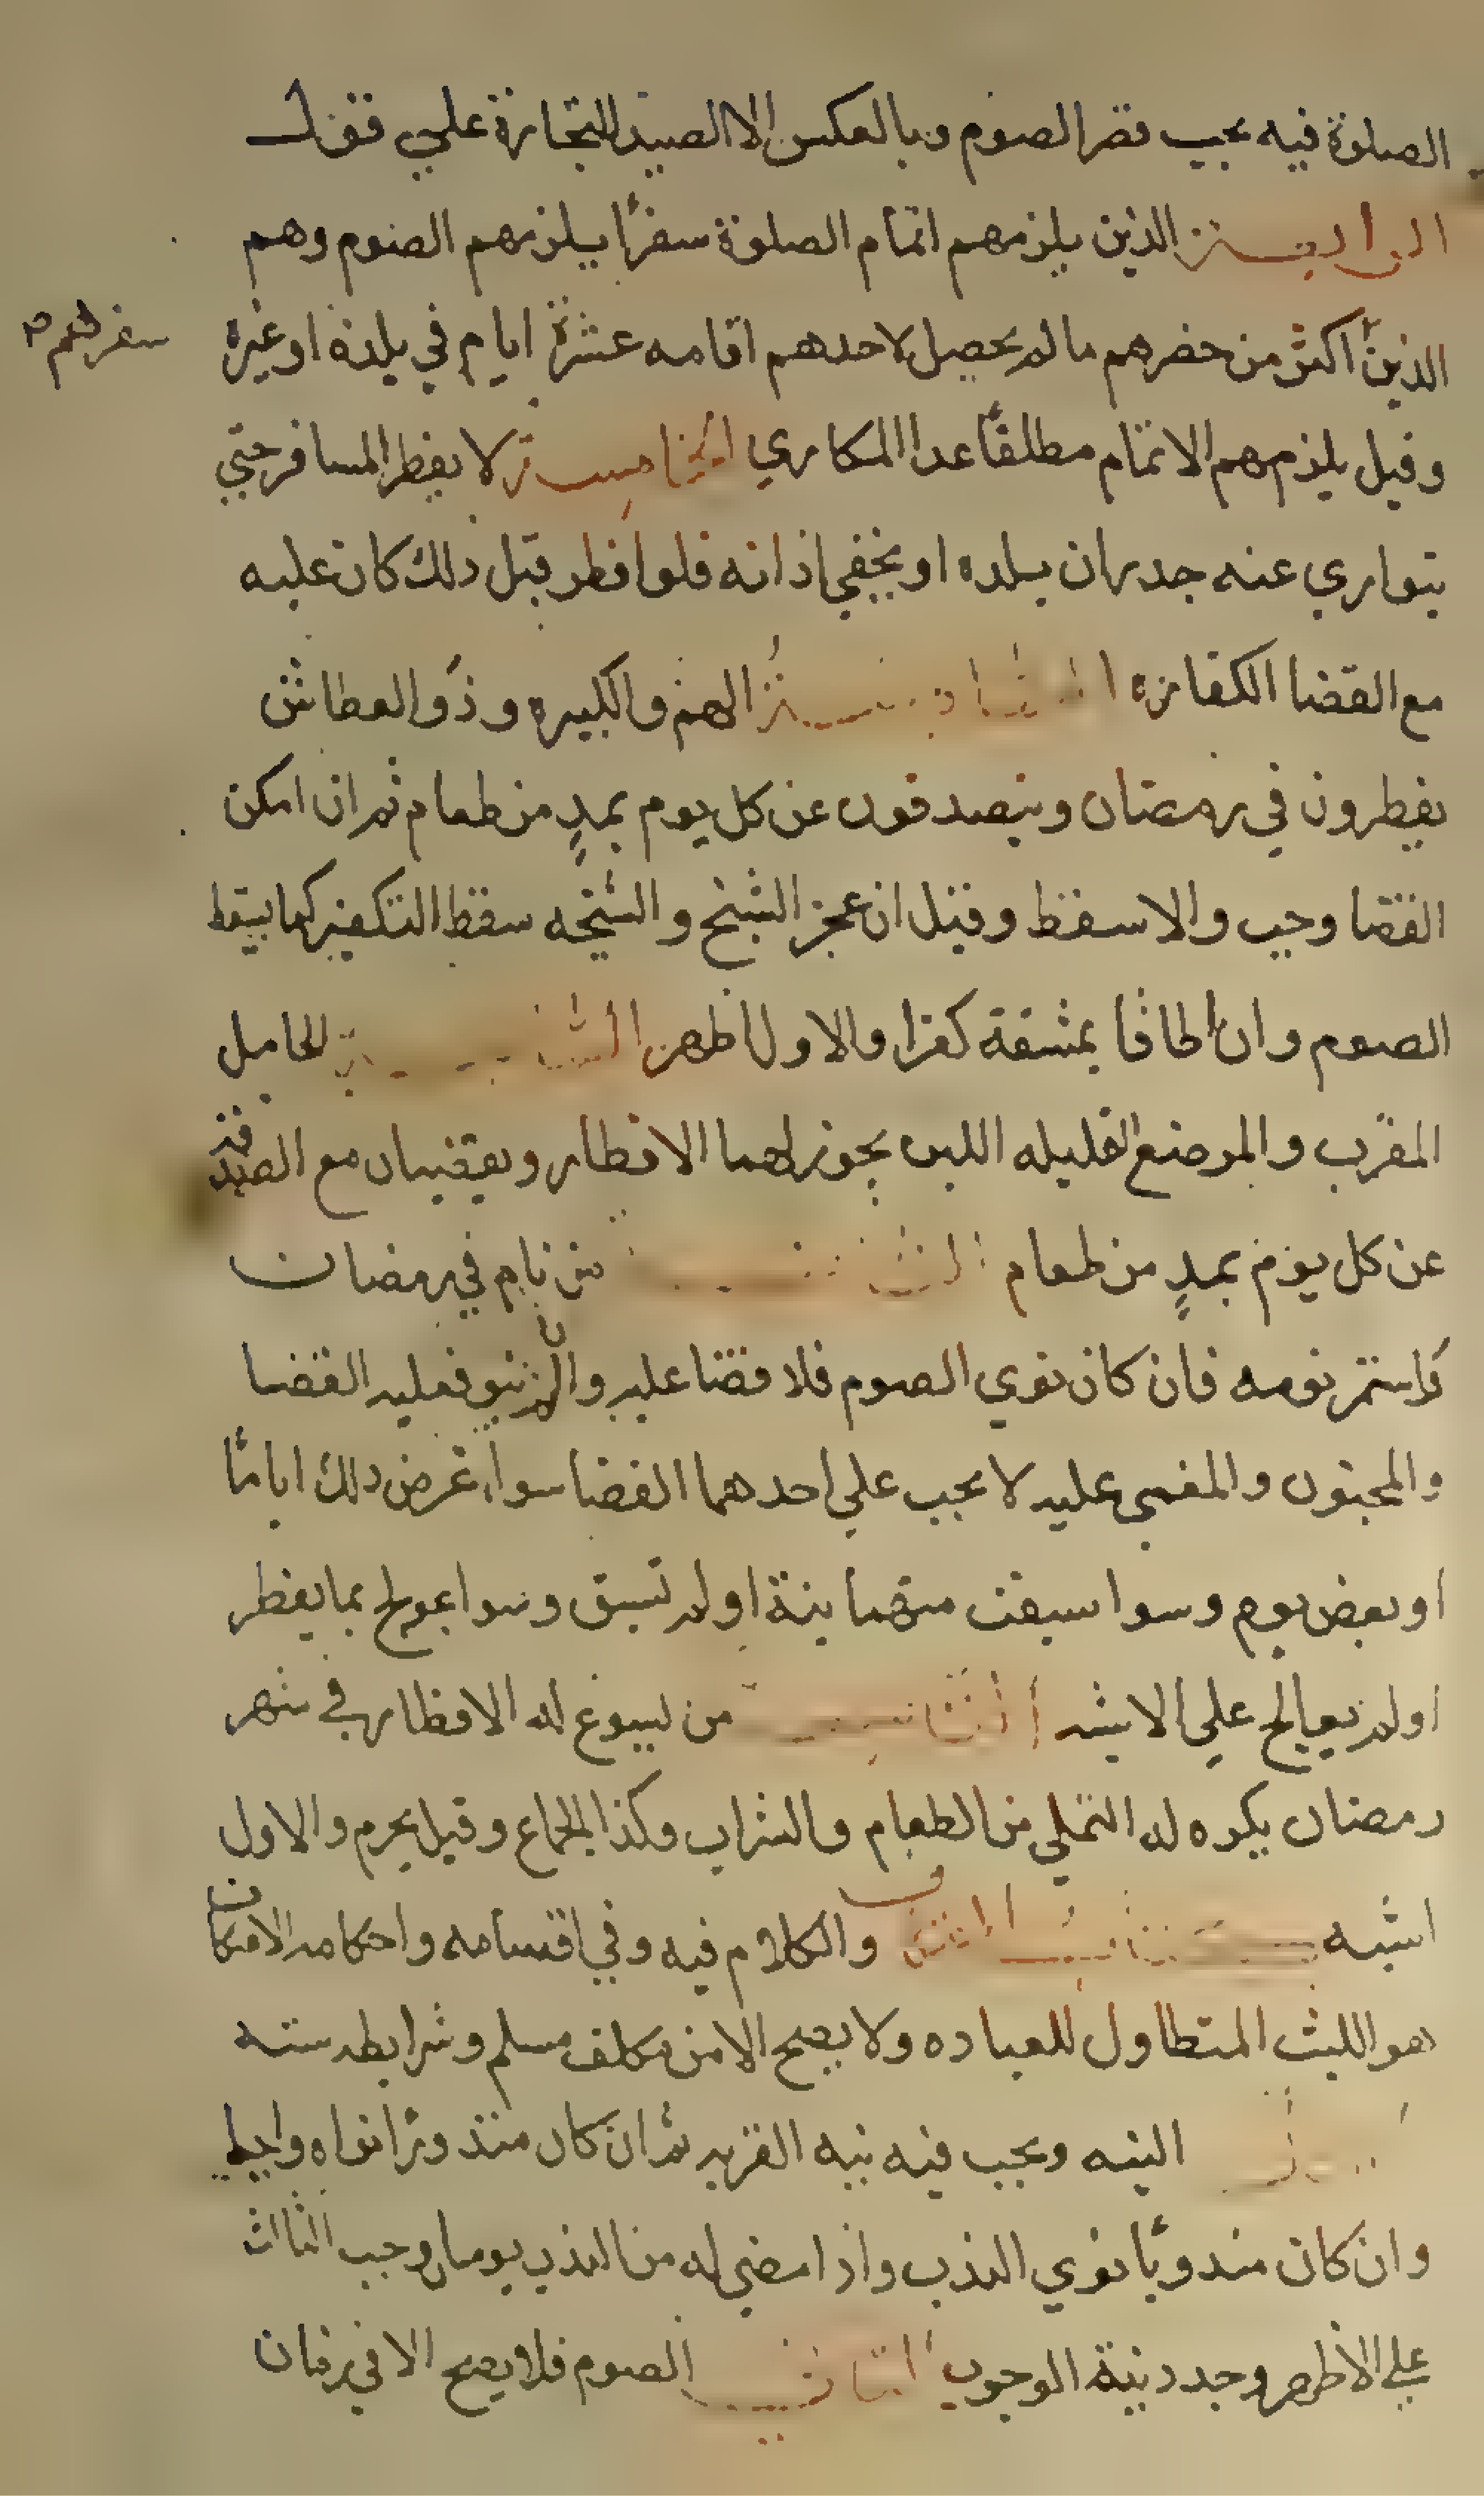 الصلوة فيه يجب قصر الصوم وبالعكس الا الصيد للتجارة علي قول
الرابعة الذين يلزمهم اتمام الصلوة سفرًا يلزمهم الصوم وهم
الذين اكثر من حضرهم ما لم يحصل لاحدهم اقامه عشرة ايام في بلده او غيره
سفرهم
وقيل يلزمهم الاتمام مطلقًا عدا المكاري الخامسة لا يفطر المسافر حتي
يتواري عنه جدران بلده او يخفي اذانه فلو افطر قبل ذلك كان عليه
مع القضا الكفارة السادسة الهم والكبيره وذو العطاش
يفطرون في رمضان ويتصدقون عن كل يوم بمدٍ من طعام ثم ان امكن
القضا وجب والا سقط وقيل ان عجز الشيخ والشيخه سقط التكفير كما يسقط
الصوم وان اطاقا بمشقة كفرا والاول اظهر السابعة الحامل
المقرب والمرضع القليله اللبن يجوز لهما الافطار ويقضيان مع الصدقة
عن كل يوم بمدٍ من طعام الثامنة من نام في رمضان
واستمر نومه فان كان نوي الصوم فلا قضا عليه وان لم ينو فعليه القضا
والمجنون والمغمي عليه لا يجب علي احدهما القضا سوا عرض ذلك ايامًا
او بعض يوم وسوا سبقت منهما نية او لم تسبق وسوا عولج بما يفطر
او لم يعالج علي الاشبه التاسعة من يسوغ له الافطار في شهر
رمضان يكره له التملي من الطعام والشراب وكذا الجماع وقيل يحرم والاول
اشبه كتاب الاعتكاف والكلام فيه وفي اقسامه واحكامه الاعتكاف
هو اللبث المتطاول للعباده ولا يصح الا من مكلف مسلم وشرايطه سته
الاول النيه ويجب فيه نيه القربه ثم ان كان منذورًا نواه واجبا
وان كان مندوبًا نوي الندب واذا مضي له من الندب يومان وجب الثالث
علي الاظهر وجدد نية الوجوب الثاني الصوم فلا يصح الا في زمان